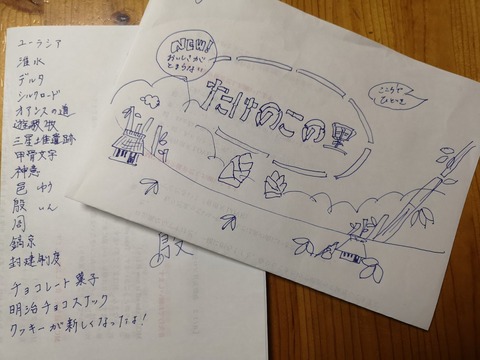 ユーラシア
淮水
デルタ
シルクロード
オアシスの道
三星堆遺跡
甲骨文字
神意
邑 ゆう
殷 いん
周
鎬京
封建制度
チョコレート菓子
明治チョコスナック
クッキーが新しくなったよ!
NEW!
おいしさが
とまらない
たけのこの里
ここらで
ひといき